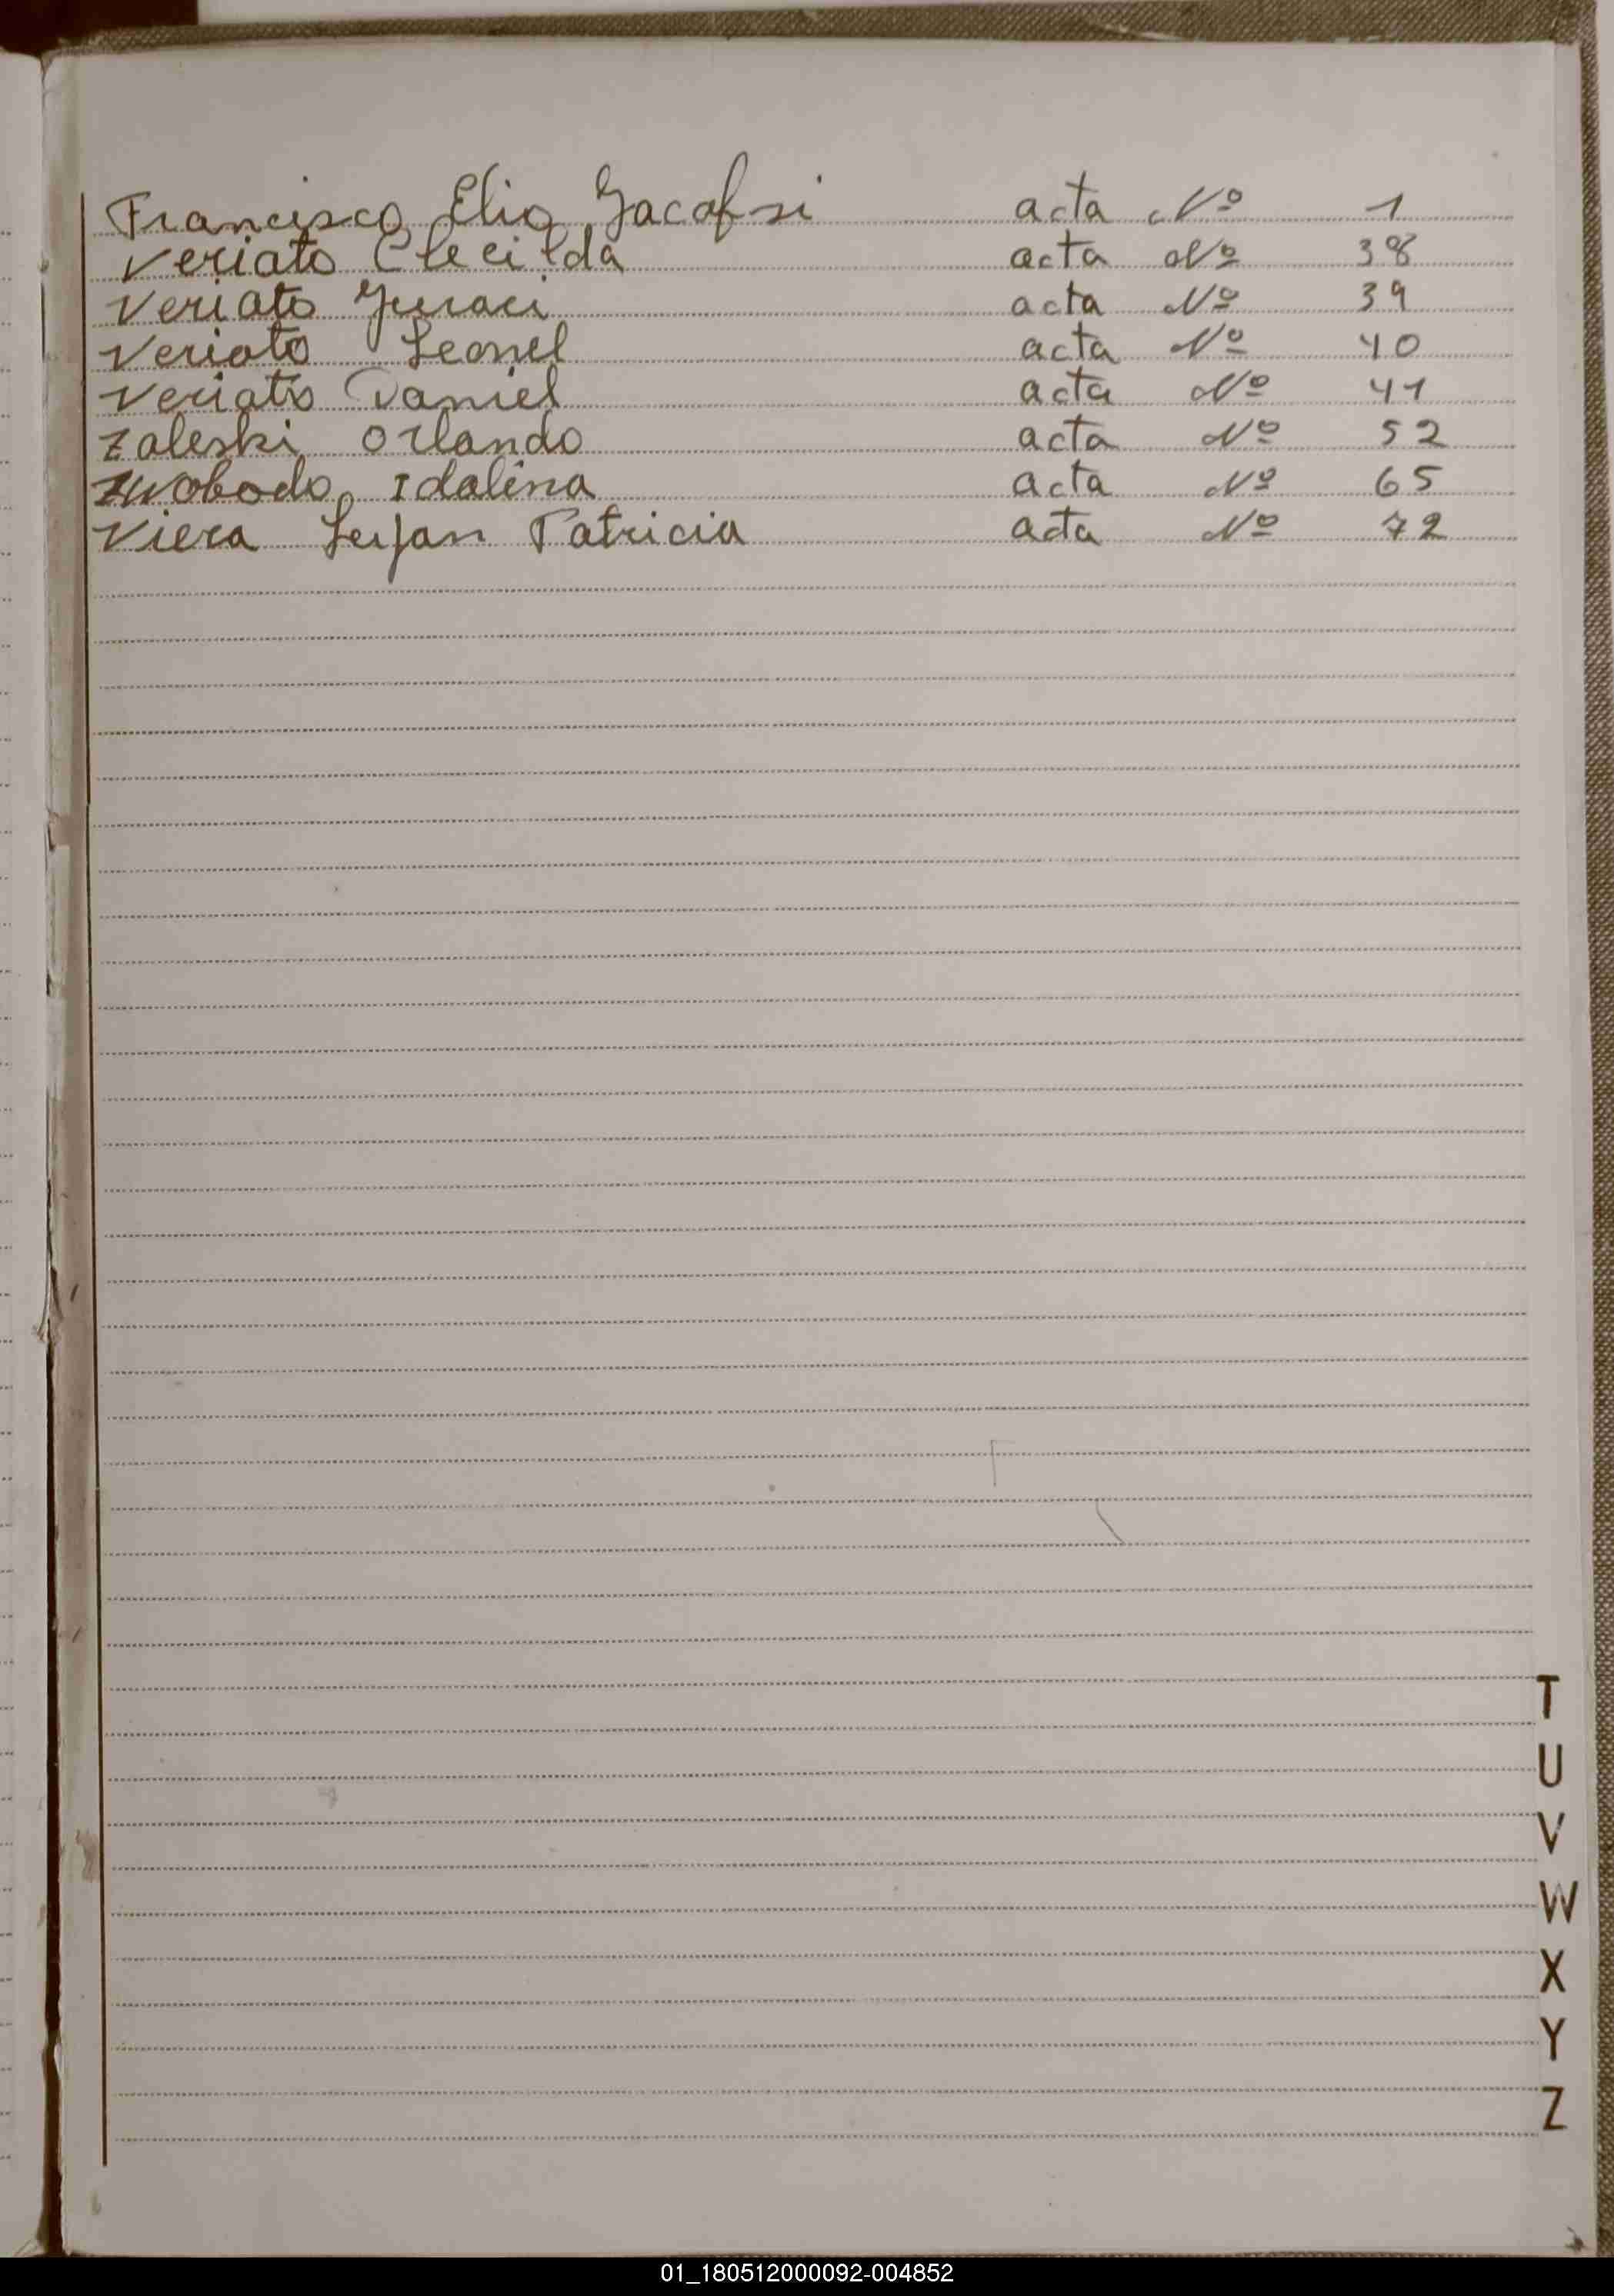 Francisco Elio Jacafsi acta Nº 1
Veriato Clecilda acta Nº 38
Veriato Juraci acta Nº 39
Veriato Leonel acta Nº 40
Veriato Daniel acta Nº 41
Zaleski Orlando acta Nº 52
Zwobodo Idalina acta Nº 65
Viera Serfan Patricia acta Nº 72
T
U
V
W
X
Y
Z
01_180512000092-004852